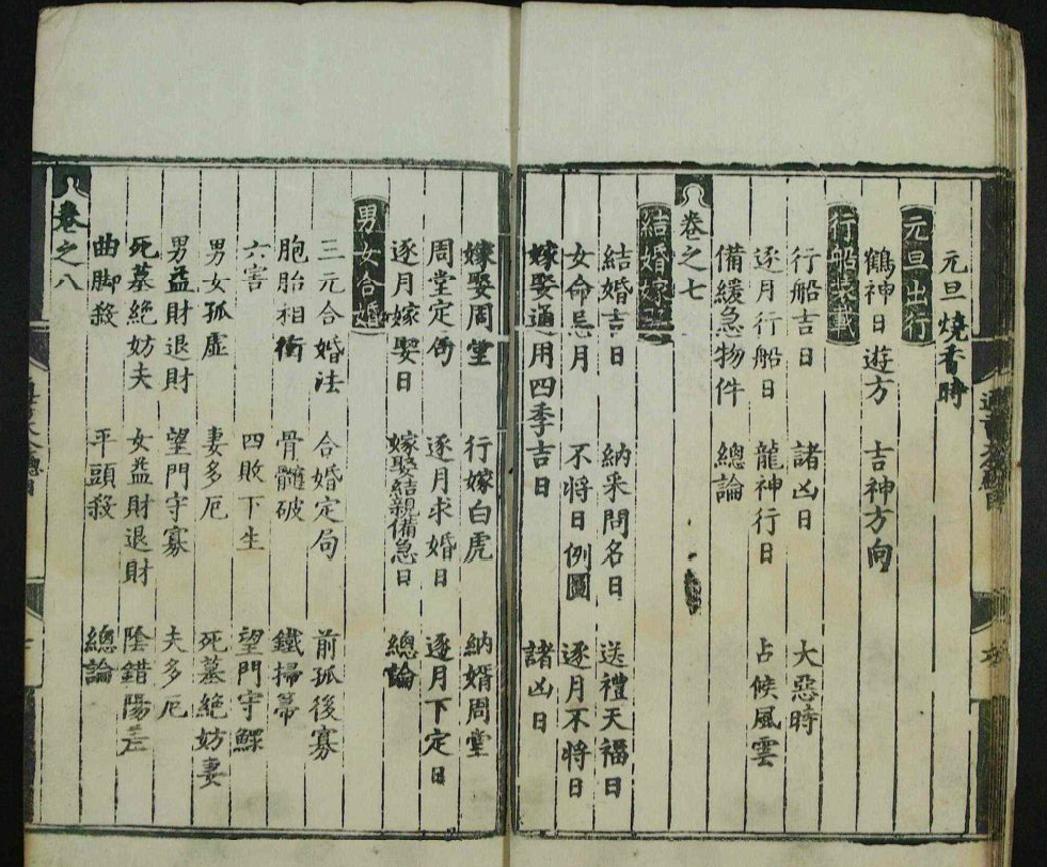 元旦燒香時
元旦出行
鶴神日遊方 吉神方向
行船裝載
行船吉日 諸凶日 大惡時
逐月行船日 龍神行日 占候風雲
備緩急物件 總論
卷之七
結婚嫁娶
結婚吉日 納采問名日 送禮天福日
女命忌月 不將日例圖 逐月不將日
嫁娶通用四季吉日 諸凶日
嫁娶周堂 行嫁白虎 納婿周堂
周堂定局 逐月求婚日 逐月下定日
逐月嫁娶日 嫁娶結親備急日 總論
男女合婚
三元合婚法 合婚定局 前孤後寡
胞胎相衝 骨髓破 鐵掃帚
六害 四敗下生 望門守鰥
男女孤虛 妻多厄 死墓絕妨妻
男益財退財 望門守寡 夫多厄
死墓絕妨夫 女益財退財 陰錯陽差
曲脚殺 平頭殺 總論
卷之八